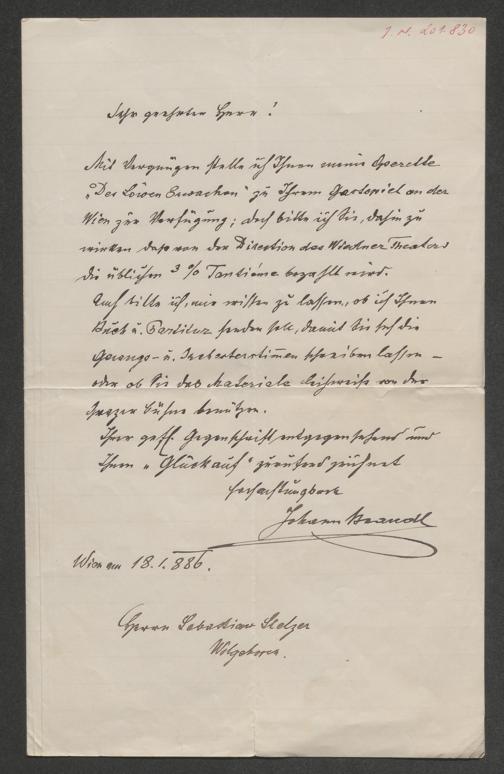 J. N. 201.830
Sehr geehrter Herr!
Mit Vergnügen stelle ich Ihnen meine Operette
„Des Löwen Erwachen" zu Ihrem Gastspiel an der
Wien zur Verfügung; doch bitte ich Sie, dahin zu
wirken daß von der Direction des Wiedner Theaters
die üblichen 3 % Tantième bezahlt wird.
Auch bitte ich, mir wissen zu lassen, ob ich Ihnen
Buch u. Partitur senden soll, damit Sie sich die
Gesangs- u. Orchesterstimmen schreiben lassen –
oder ob Sie das Materiale leihweise von der
Grazer Bühne benützen.
Ihrer geff. Gegenschrift entgegensehend und
Ihnen „Glückauf" zurufend zeichnet
hochachtungsvoll
Johann Brandl
Wien am 18.1.886.
Herrn Sebastian Stelzer
Wolgeboren.